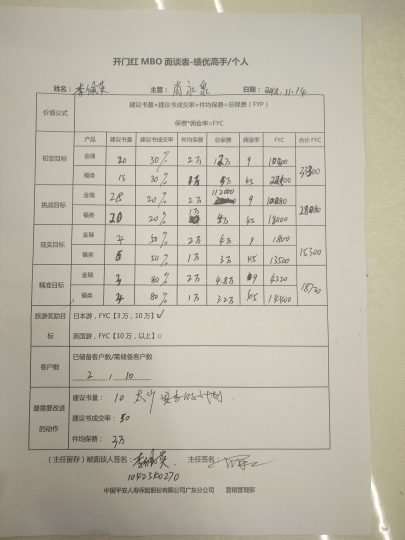 开门红 MBO 面谈表-绩优高手/个人
姓名： 主管：肖永泉 日期：2018.11.14
价值公式 建议书量×建议书成交率×件均保费=总保费（FYP）
保费*佣金率=FYC
产品 建议书量 建议书成交率 件均保费 总保费 佣金率 FYC 合计 FYC
初定目标 金瑞 20 30% 2万 12万 9
福类 15 30% 45
挑战目标 金瑞 20% 2万 112000 9
福类 20 20% 1万 4万 45 18000
现实目标 金瑞 4 50% 2万 4万 9 1800 15300
福类 6 50% 1万 3万 45 13500
精准目标 金瑞 3 80% 2万 4.8万 9 4320 18720
福类 4 80% 1万 3.2万 45 14400
旅游奖励目标 日本游，FYC【3 万，10 万】✓
英国游，FYC【10 万，以上】□
客户数 已储备客户数/需储备客户数
2 / 10
最需要改进的动作 建议书量： 10
建议书成交率：50
件均保费： 3万
（主任留存）被面谈人签名： 主任签名：
中国平安人寿保险股份有限公司广东分公司 营销管理部